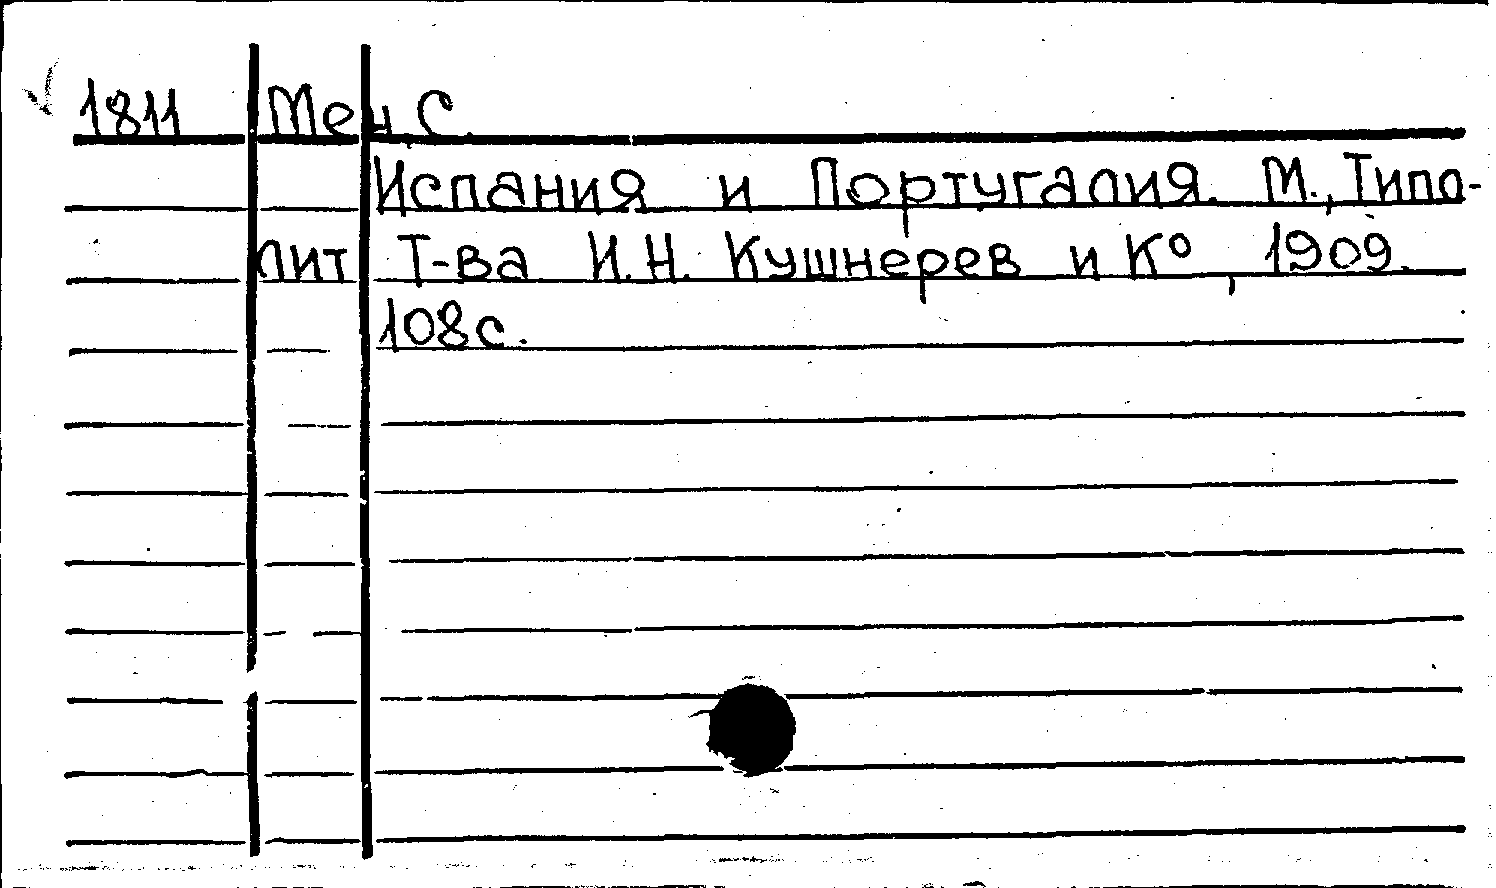 1811 Меч, С.
Испания и Португалия. М., Типо-
лит Т-ва И.Н. Кушнерев и Ко, 1909.
108с.